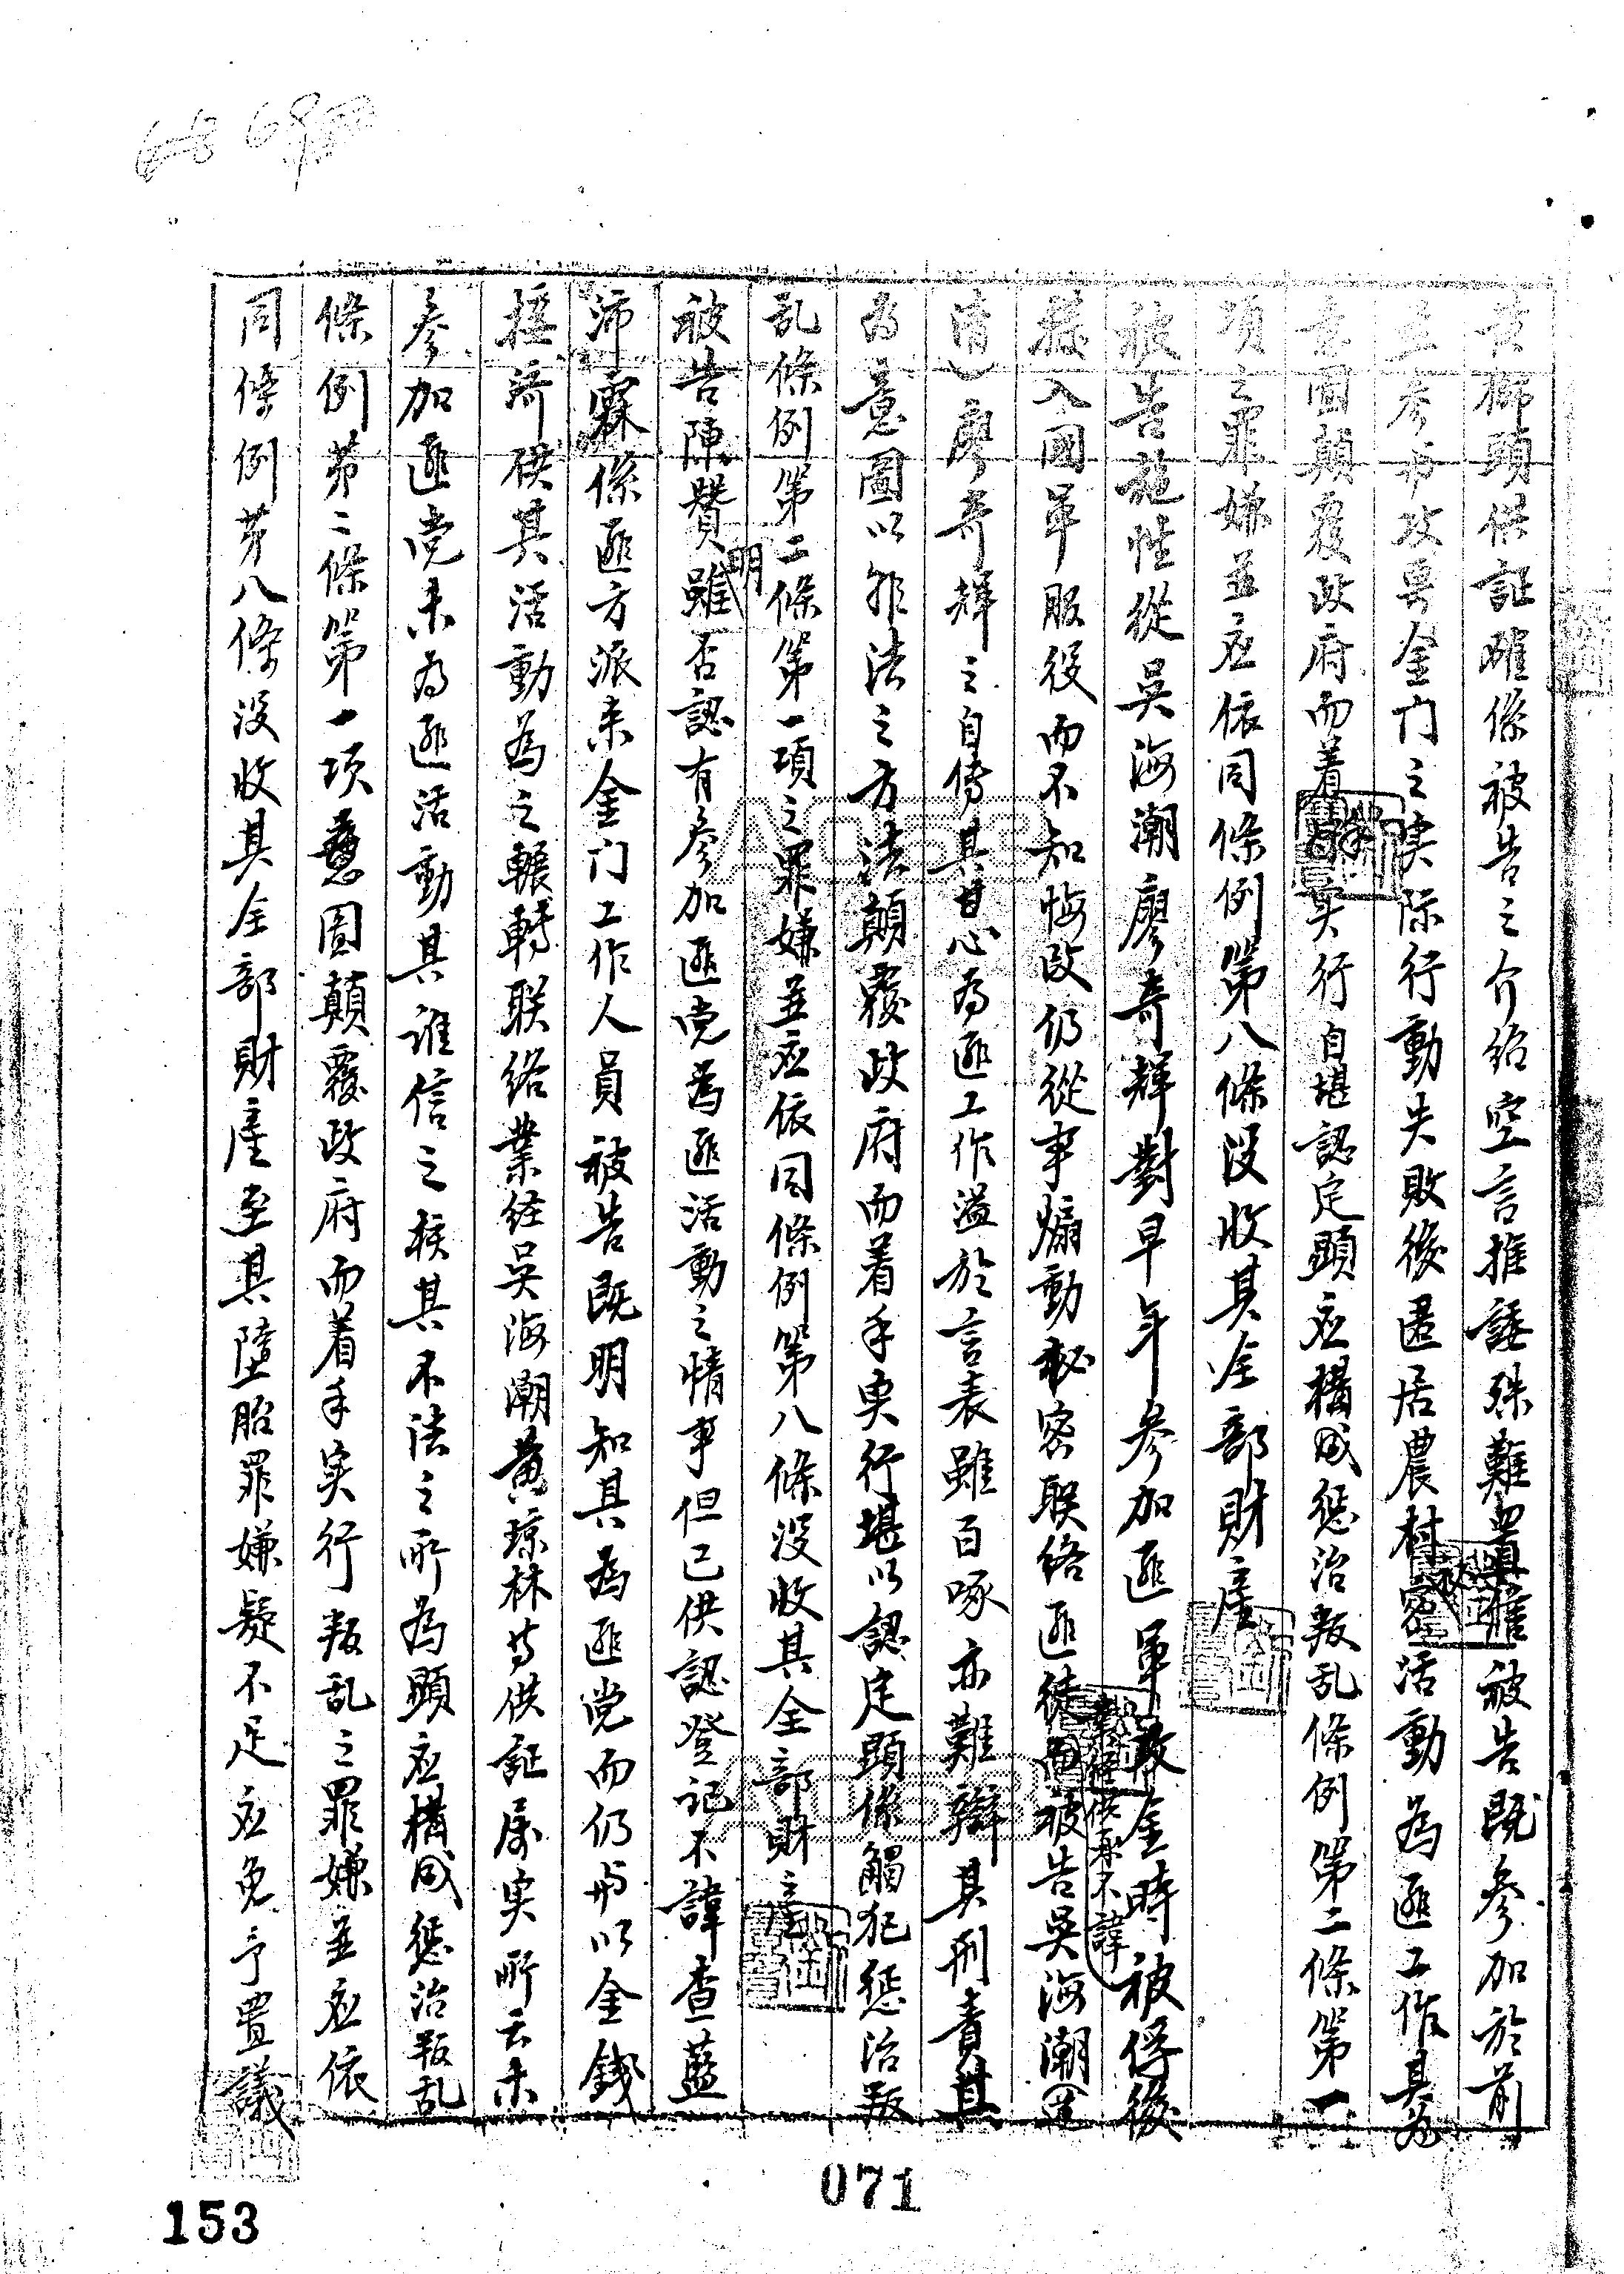 黃梛頭供証確係被告之介紹空言推諉殊難置信雖被告既參加於前
並參与攻略金门之实际行動失敗後匿居農村密密活動為匪工作其為
意圖顛覆政府而着手实行自堪認定顯应構成惩治叛乱條例第二條第一
項之罪嫌並应依同條例第八條没收其全部財產
被告施性從吳海潮廖奇輝對早年參加匪軍攻金時被俘後
供承不諱
撥入國軍服役而不知悔改仍從事煽動秘密联络匪徒而被告吳海潮(運
清)廖奇輝之自傳其甘心為匪工作溢於言表雖百啄亦難辯其刑責其
為意圖以非法之方法顛覆政府而着手实行堪以認定顯係觸犯惩治叛
乱條例第二條第一項之罪嫌並应依同條例第八條没收其全部財產
明
被告陳贊雖否認有參加匪党為匪活動之情事但已供認登記不諱查藍
沛霖係匪方派来金门工作人員被告既明知其為匪党而仍与以金錢
接济供其活動為之輾轉联络業経吳海潮黄琼林等供証属实所云未
參加匪党未為匪活動其誰信之核其不法之所為顯应構成惩治叛乱
條例第二條第一项意圖顛覆政府而着手实行叛乱之罪嫌並应依
同條例第八條没收其全部財產至其墮胎罪嫌疑不足应免予置議
071
153